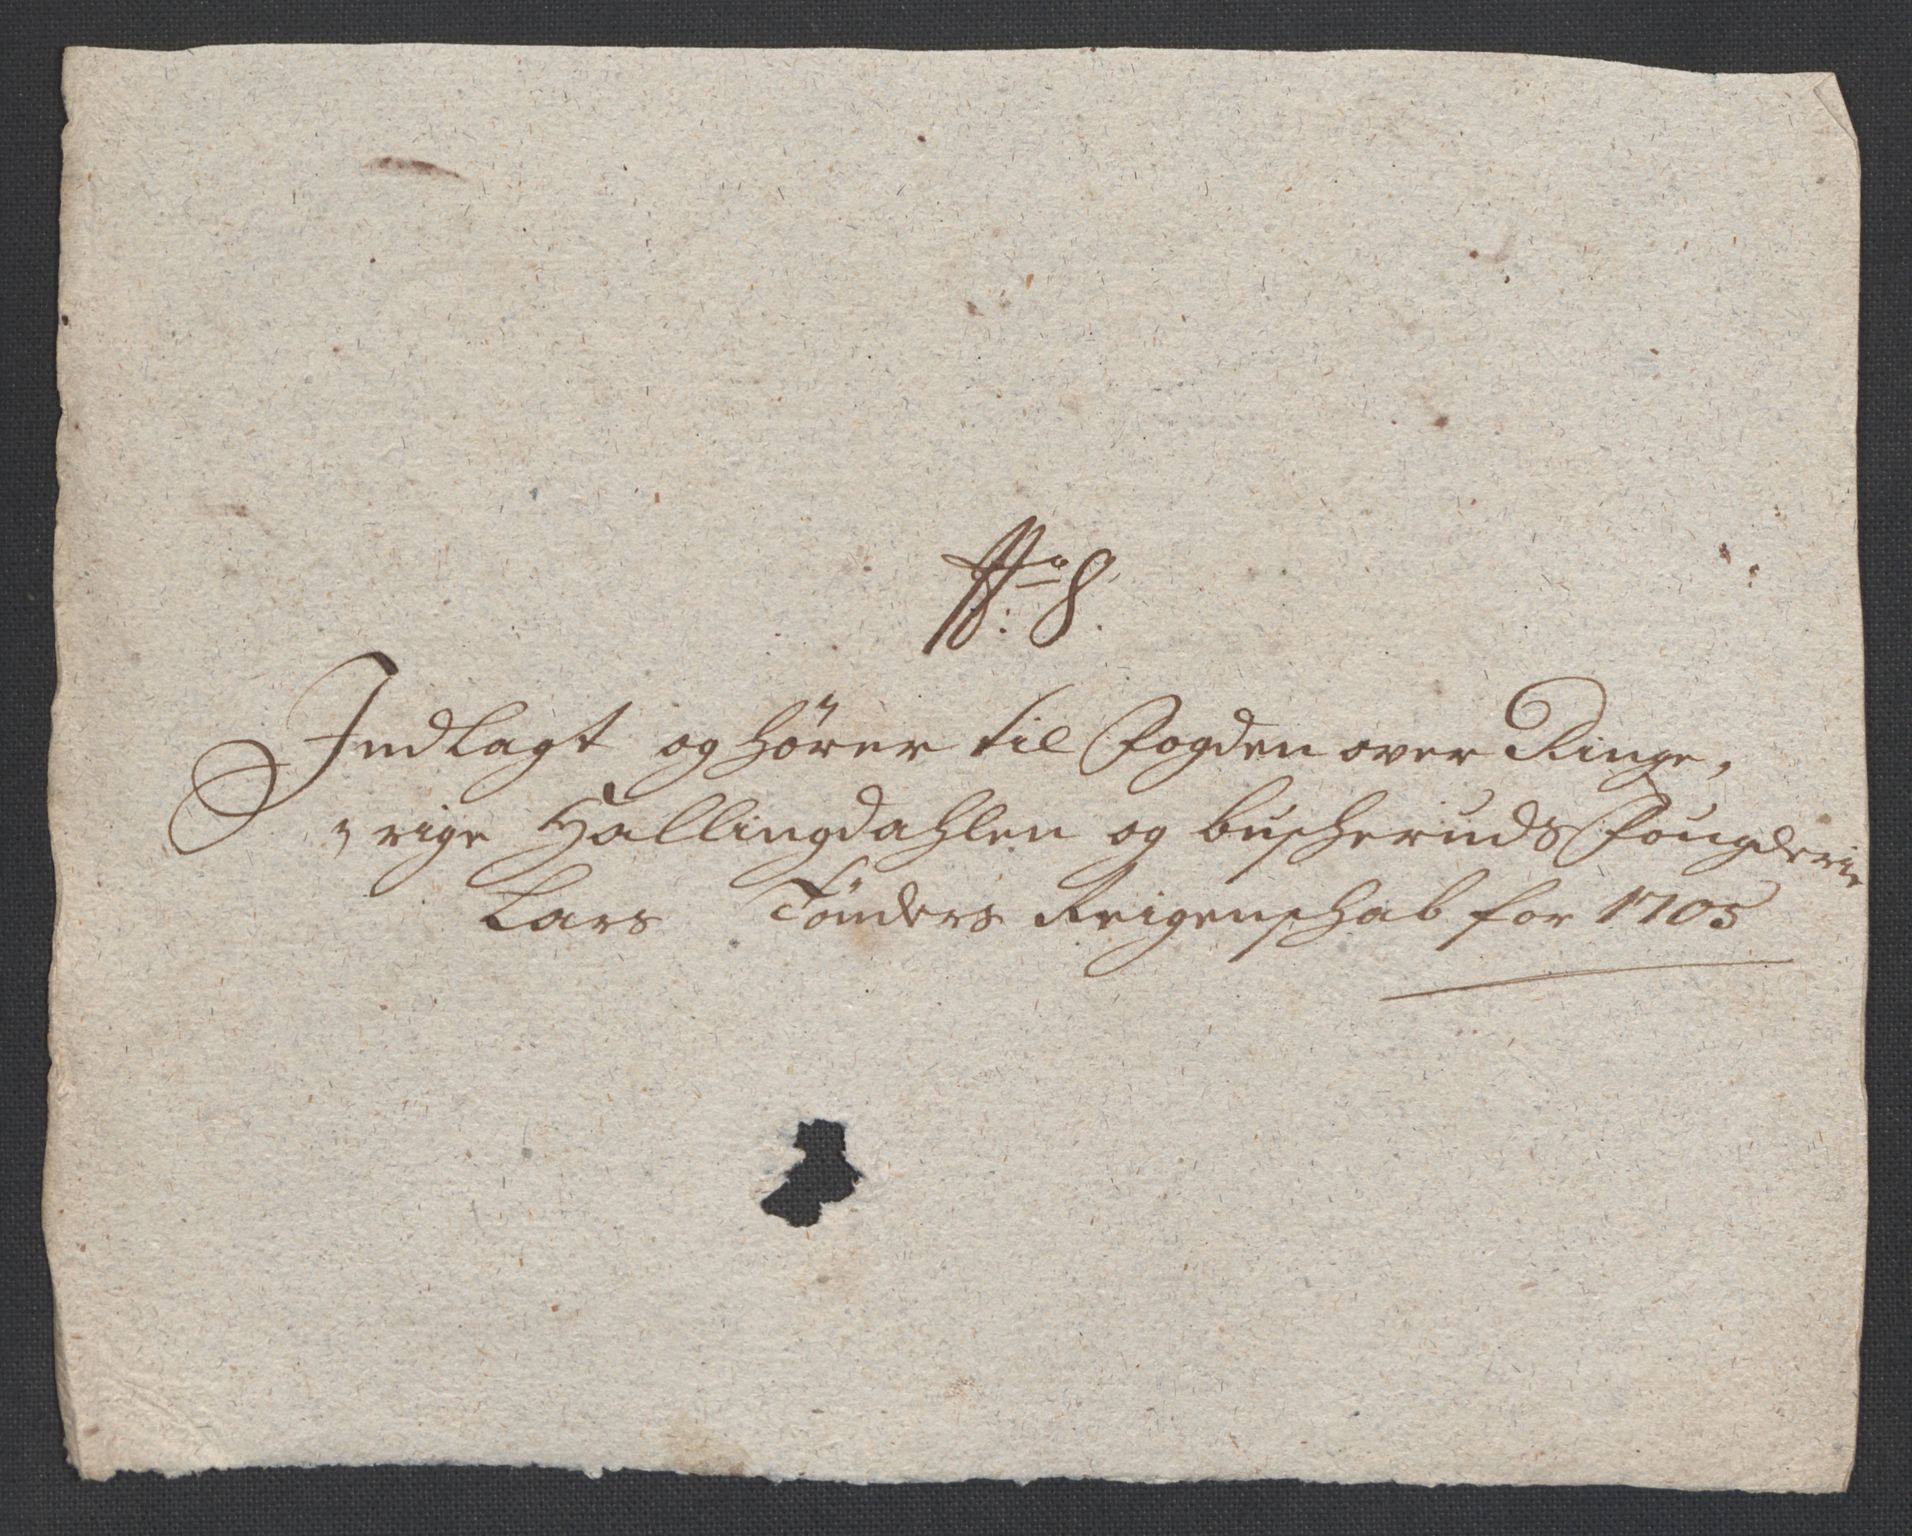 No: 8.
Indlagt og hörer til Fogden over Ringe,
rige Hallingdahlen og busheruds Fougderie
Lars Tönders Reigenshab for 1705